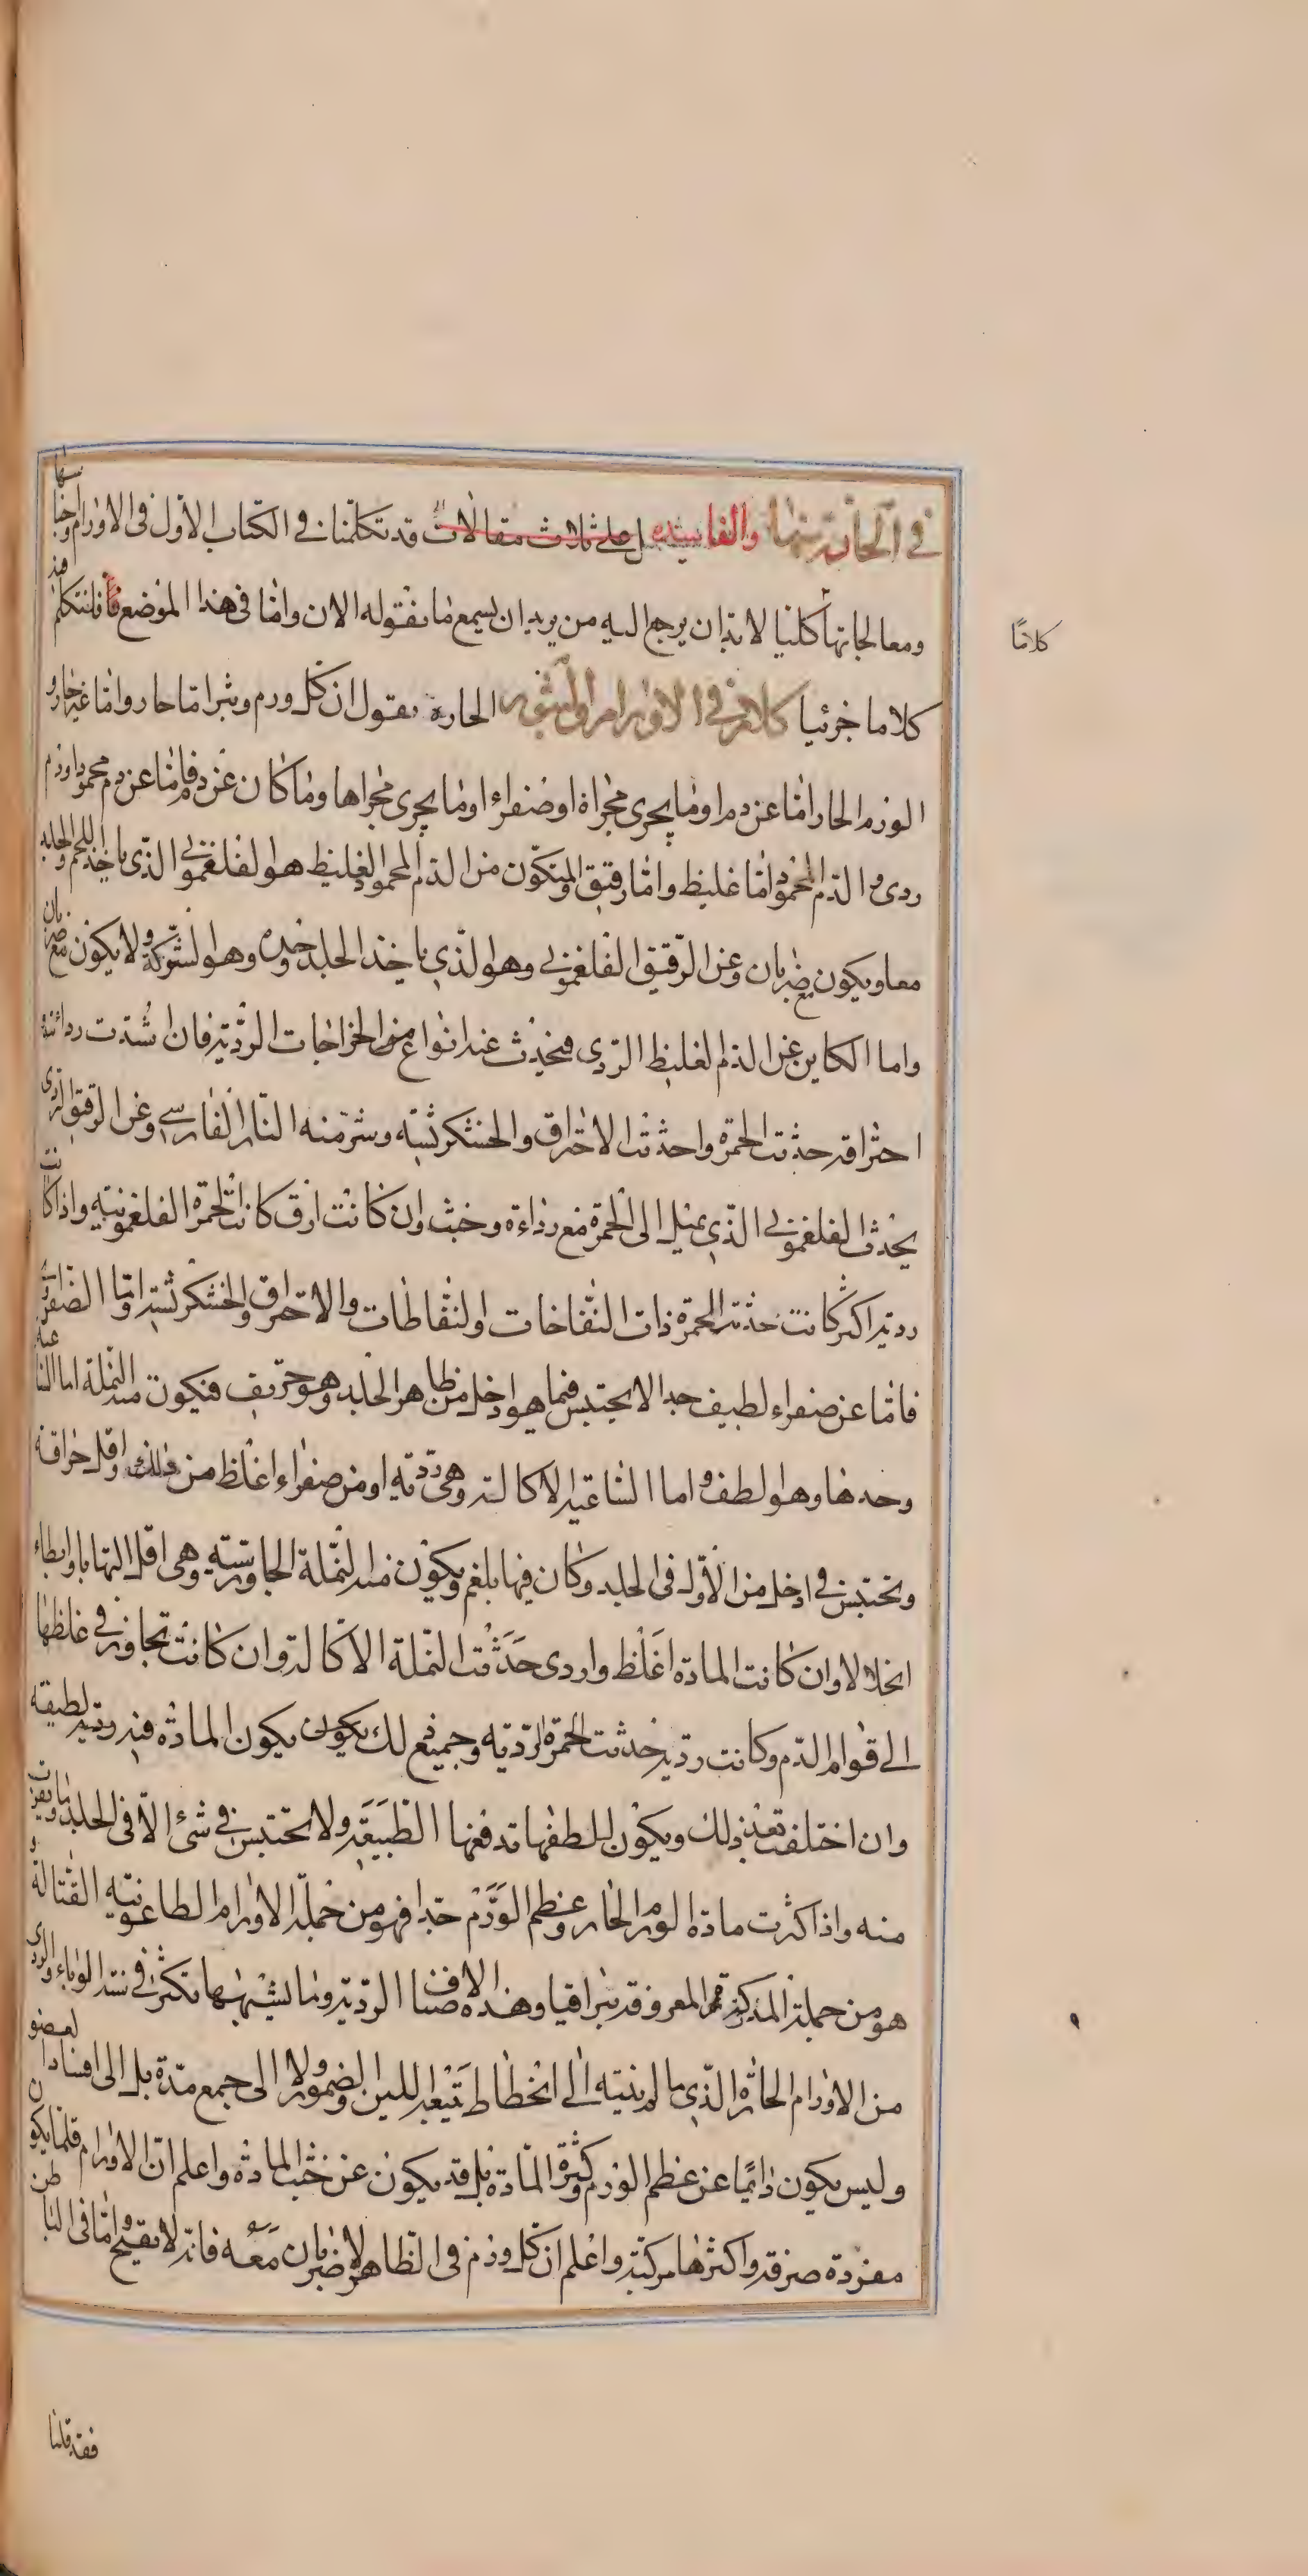 في الحارة منها والفاسدة يشتمل على ثلاث مقالات قد تكلمنا في الكتاب الاول في الاورام واجناسها
ومعالجاتها كلاما كليا لا بد ان يرجع اليه من يريد ان يسمع ما نقوله الان واما في هذا الموضع فانا نتكلم فيه
كلاما جزئيا كلام في الاورام والبثور الحارة نقول ان كل ورم وبثر اما حار واما غير حار و
الورم الحار اما عن دم او ما يجري مجراه او صفراء او ما يجري مجراها وما كان عن دم فاما عن دم محمود او دم
ردى والدم المحمود اما غليظ واما رقيق والمتكون من الدم المحمود الغليظ هو الفلغموني الذي ياخذ اللحم والجلد
معا ويكون مع ضربان وعن الرقيق الفلغموني وهو الذي ياخذ الجلد وحده وهو الشوكة ولا يكون مع ضربان
واما الكاين عن الدم الغليظ الردى فيحدث عنه انواع من الخراجات الردية فان اشتدت ردائته
احتراقه حدثت الحمرة واحدثت الاحتراق والخشكريشه وشر منه النار الفارسي وعن الرقيق الردى
يحدث الفلغموني الذي يميل الى الحمرة مع رداءة وخبث وان كانت ارق كانت الحمرة الفلغمونيه واذا كانت
ردية اكثر كانت حدثت الحمرة ذات النفاخات والنفاطات والاحتراق والخشكريشة واما الصفراوية
فاما عن صفراء لطيف جدا لا يحتبس فيما هو ادخل من ظاهر الجلد وهو حريف فتكون منه النملة اما الساعية
وحدها وهو الطف واما الساعية الاكالة وهي ردية او من صفراء اغلظ من ذلك واقل حرافة
وتحتبس في ادخل من الاول في الجلد وكان فيها بلغم ويكون منه النملة الجاورسيه وهي اقل التهابا وابطاء
انحلالا وان كانت المادة اغلظ واردى حدثت النملة الاكالة وان كانت تجاوز في غلظها
الى قوام الدم وكانت ردية حدثت الحمرة الردية وجميع ذلك يكون يكون المادة فيه ردية لطيفة
وان اختلفت بعد ذلك ويكون للطفها تدفعها الطبيعة ولا تحتبس في شئ الا في الجلد وما يقرب
منه واذا كثرت مادة الورم الحار وعظم الورم جدا فهو من جملة الاورام الطاعونية القتالة و
هو من جملة المذكورة قم المعروفة بتراقيا وهذه الاصناف الردية وما يشبهها تكثر في سنة الوباء والردى
من الاورام الحارة الذي ما لم ينته الى انحطاط يتبعه اللين والضمور ولا الى جمع مدة بل الى افساد العضو
وليس يكون دائما عن عظم الورم وكثرة المادة بل قد يكون عن خبث المادة واعلم ان الاورام قلما يكون
مفردة صرفة واكثرها مركبة واعلم ان كل ورم في الظاهر لا ضربان معه فانه لا يقيح واما في الباطن
فقد قلنا
كلامًا